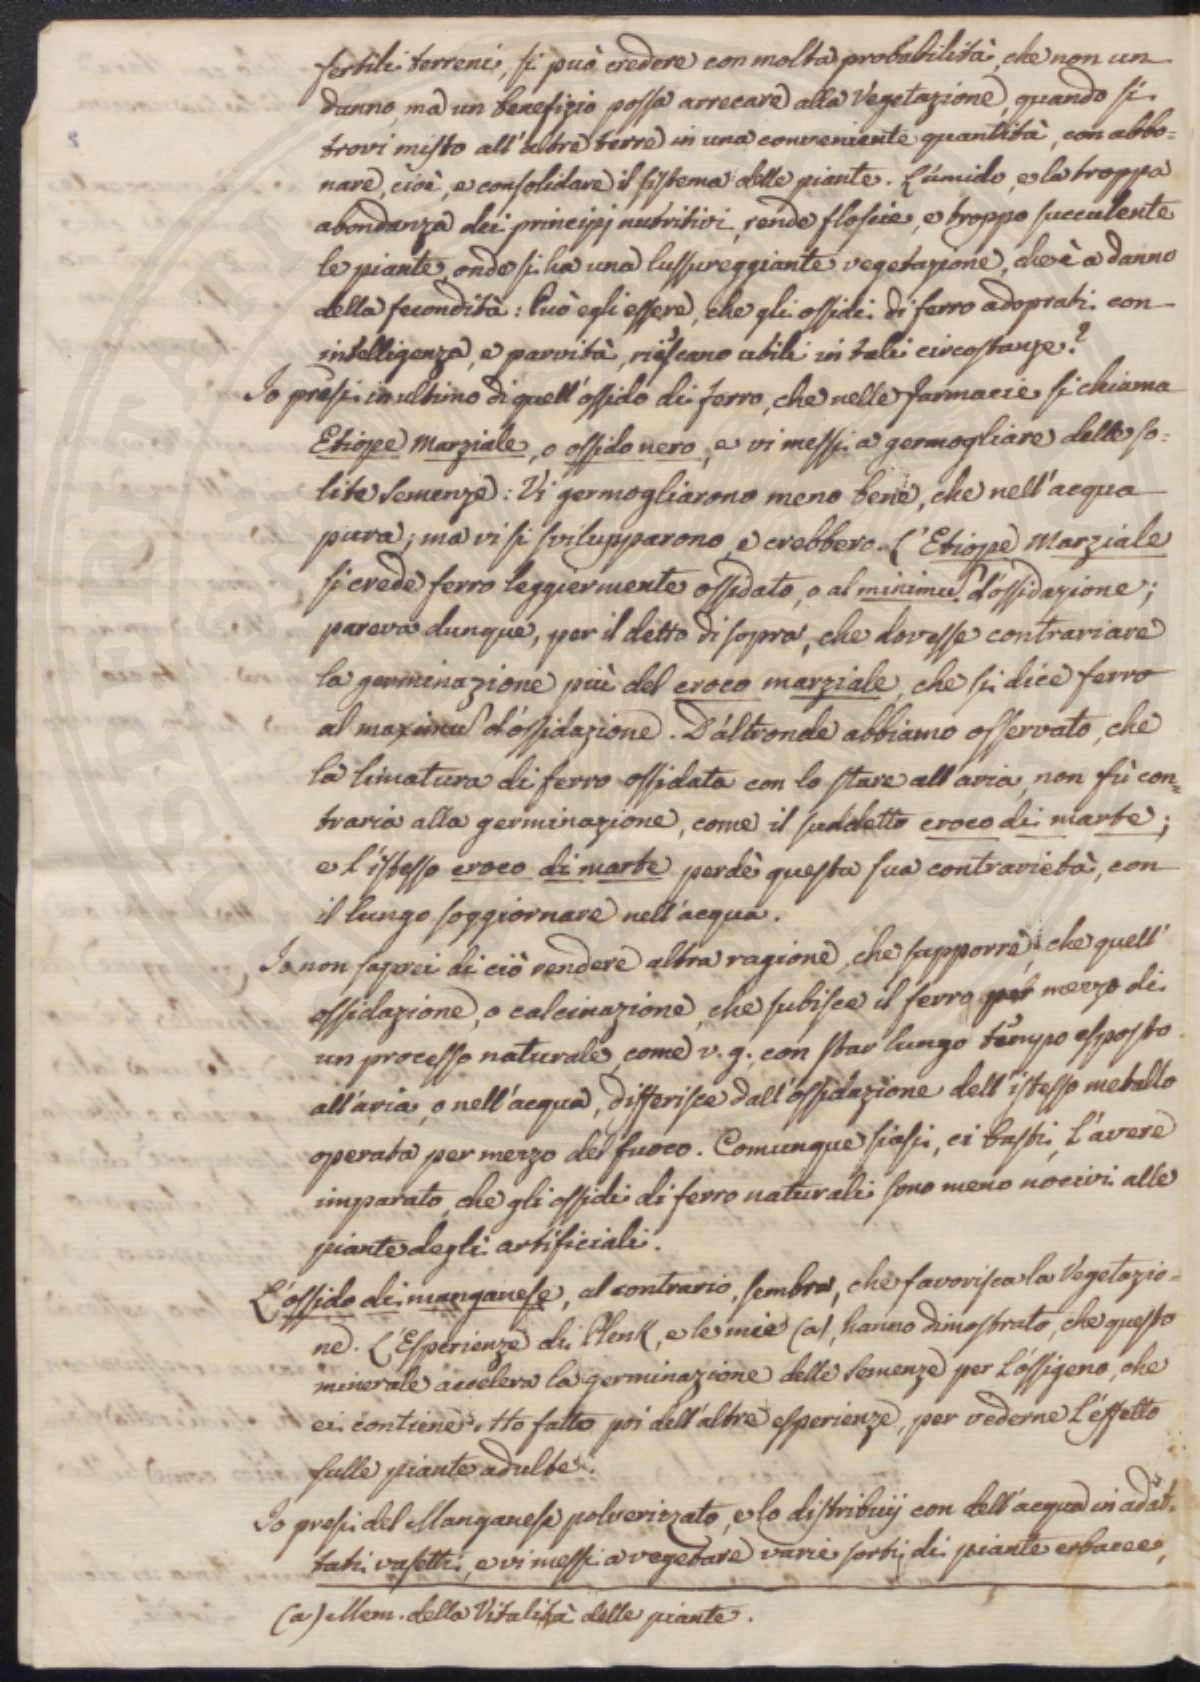 fertili terreni, si può credere con molta probabilità, che non un
danno, ma un benefizio possa arrecare alla Vegetazione, quando si
trovi misto all'altre terre in una conveniente quantità, con abbo=
nare, cioè, e consolidare il sistema delle piante. L'úmido, e la troppa
abondanza dei principj nutritivi, rende floscie, e troppo succulente
le piante, onde si ha una lussureggiante vegetazione, che è a danno
della fecondità: Può egli essere, che gli ossidi di ferro adoprati con
intelligenza, e parvità, riescano utili in tali circostanze?
Io presi in ultimo di quell'ossido di ferro, che nelle farmacie si chiama
Etiope Marziale, o ossido nero, e vi messi a germogliare delle so=
lite Semenze: Vi germogliarono meno bene, che nell'acqua
pura; ma vi si svilupparono, e crebbero. L'Etiope Marziale
si crede ferro leggiermente ossidato, o al minimus d'ossidazione;
pareva dunque, per il detto di sopra, che dovesse contrariare
la germinazione più del croco marziale, che si dice ferro
al maximus d'ossidazione. D'altronde abbiamo osservato, che
la limatura di ferro ossidata con lo stare all'aria, non fù con=
traria alla germinazione, come il suddetto croco di marte;
e l'istesso croco di marte perdè questa sua contrarietà, con
il lungo soggiornare nell'acqua.
Io non saprei di ciò rendere altra ragione, che supporre, che quell'
ossidazione, o calcinazione, che subisce il ferro per mezzo di
un processo naturale, come v. g. con star lungo tempo esposto
all'aria, o nell'acqua, differisce dall'ossidazione dell'istesso metallo
operata per mezzo del fuoco. Comunque siasi, ci basti, l'avere
imparato, che gli ossidi di ferro naturali sono meno nocivi alle
piante degli artificiali.
L'ossido di manganese, al contrario, sembra, che favorisca la Vegetazio=
ne. L'Esperienze di Plenk, e le mie (a), hanno dimostrato, che questo
minerale accelera la germinazione delle Semenze per l'ossigeno, che
ei contiene. Ho fatto poi dell'altre esperienze, per vederne l'effetto
sulle piante adulte.
Io presi del Manganese polverizzato, e lo distribuij con dell'acqua in adat=
tati vasetti, e vi messi a vegetare varie sorti di piante erbacee,
(a) Mem. della Vitalità delle piante.